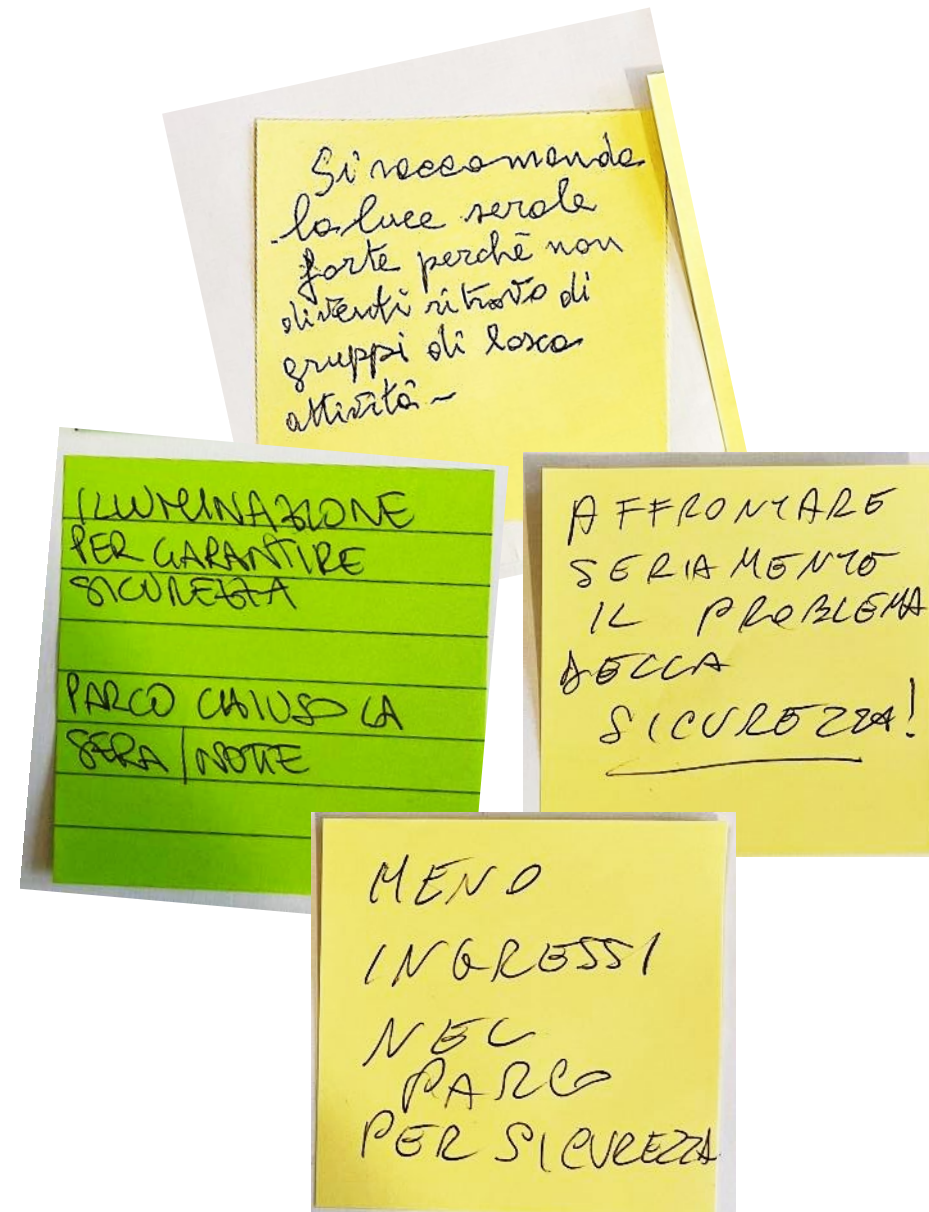 Si raccomanda
la luce serale
forte perchè non
diventi ritrovo di
gruppi di losca
attività ~
ILLUMINAZIONE
PER GARANTIRE
SICUREZZA
PARCO CHIUSO LA
SERA/NOTTE
AFFRONTARE
SERIAMENTE
IL PROBLEMA
DELLA
SICUREZZA!
MENO
INGRESSI
NEL
PARCO
PER SICUREZZA